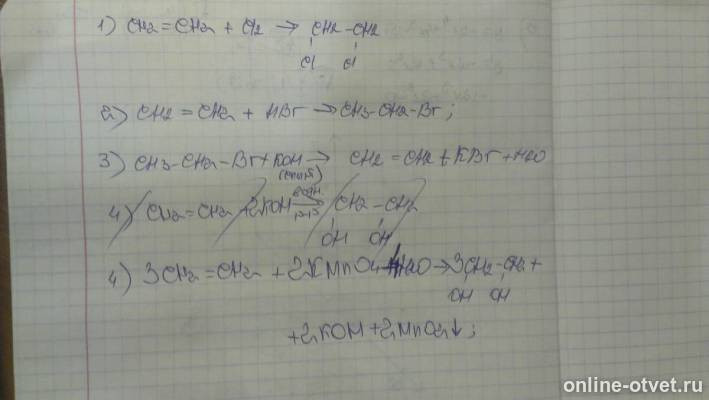 1) CH2=CH2 + Cl2 → CH2-CH2
Cl Cl
2) CH2=CH2 + HBr → CH3-CH2-Br;
3) CH3-CH2-Br + KOH → CH2=CH2 + KBr + H2O
(спирт)
4) CH2=CH2 + 2KOH → CH2-CH2
OH OH
4) 3CH2=CH2 + 2KMnO4 + 4H2O → 3CH2-CH2 +
OH OH
+ 2KOH + 2MnO2↓;
online-otvet.ru